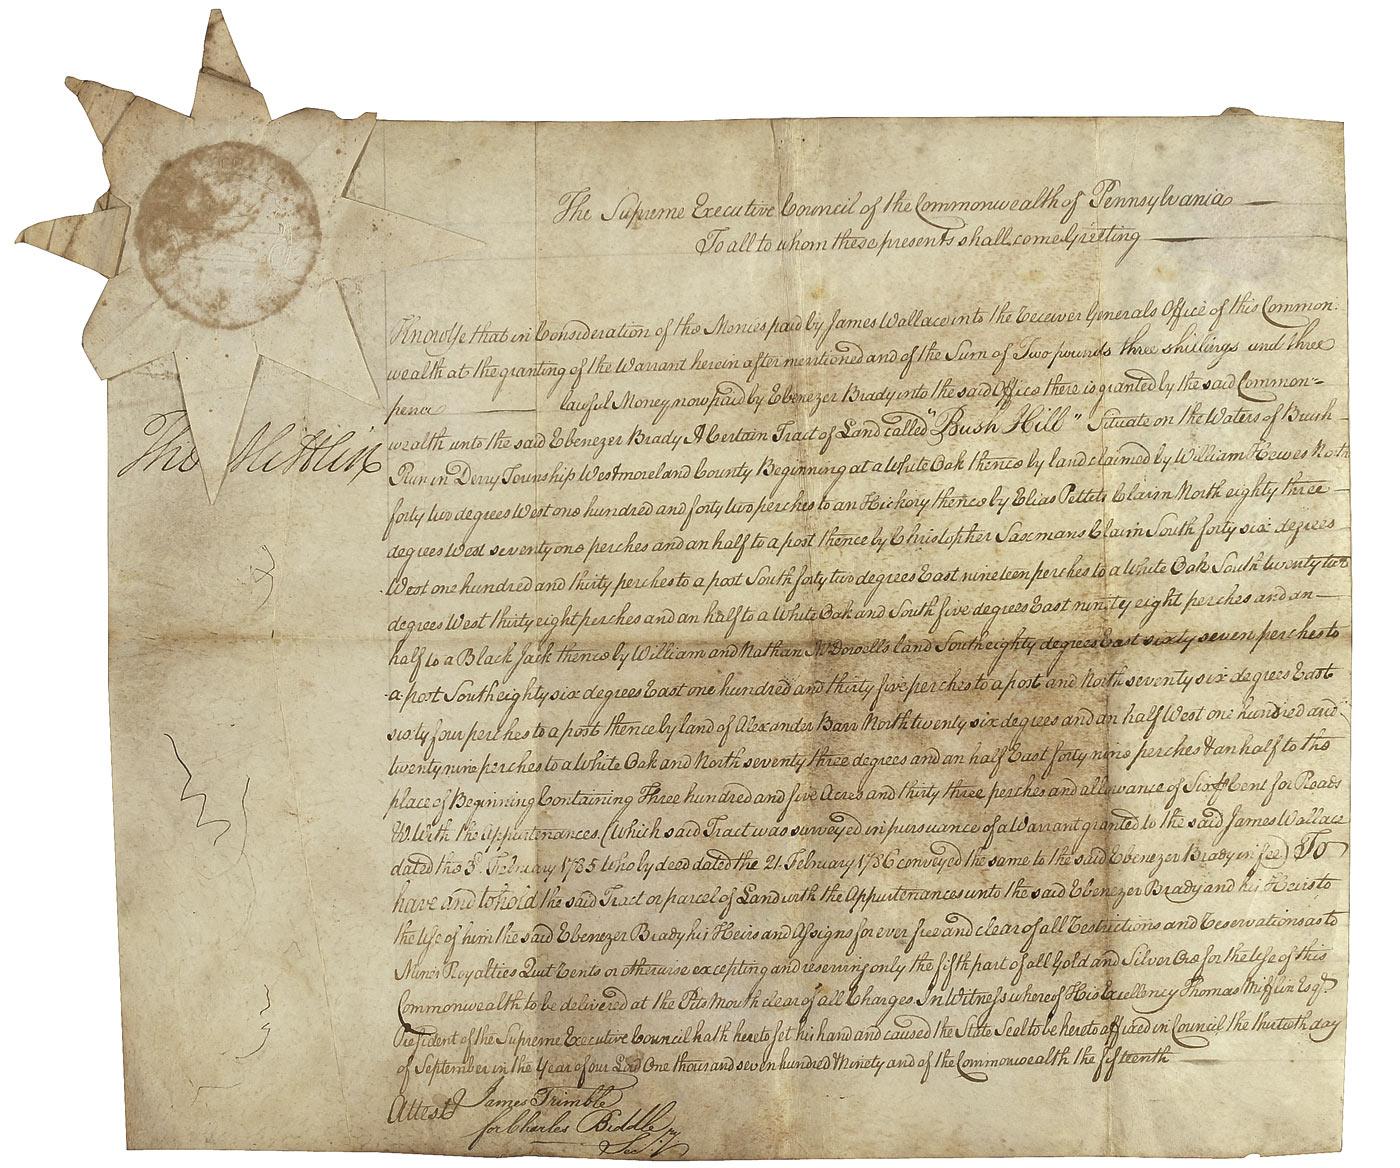 The Supreme Executive Council of the Commonwealth of Pennsylvania
To all to whom these presents shall come Greeting
Know Ye that in Consideration of the Monies paid by James Wallace into the Receiver Generals Office of this Common:
wealth at the granting of the Warrant herein after mentioned and of the Sum of Two pounds three shillings and three
pence lawful Money now paid by Ebenezer Brady into the said Office there is granted by the said Common=
wealth unto the said Ebenezer Brady A Certain Tract of Land called "Bush Hill" Situate on the Waters of Brush
Run in Derry Township Westmoreland County Beginning at a White Oak thence by land claimed by William Hewes North
forty two degrees West one hundred and forty two perches to an Hickory thence by Elias Pettits Claim North eighty three
degrees West seventy one perches and an half to a post thence by Christopher Saxmans Claim South forty six degrees
West one hundred and thirty perches to a post South forty two degrees East nineteen perches to a White Oak South twenty two
degrees West thirty eight perches and an half to a White Oak and South five degrees East ninety eight perches and an
half to a Black Jack thence by William and Nathan McDowells land South eighty degrees East sixty seven perches to
a post South eighty six degrees East one hundred and thirty five perches to a post and North seventy six degrees East
sixty four perches to a post thence by land of Alexander Barr North twenty six degrees and an half West one hundred and
twenty nine perches to a White Oak and North seventy three degrees and an half East forty nine perches & an half to the
place of Beginning Containing Three hundred and five Acres and thirty three perches and allowance of Six ⅌ Cent for Roads
&c With the Appurtenances. (Which said Tract was surveyed in pursuance of a Warrant granted to the said James Wallace
dated the February 1785 Who by deed dated the 21. February 1786 conveyed the same to the said Ebenezer Brady in fee) To
have and to hold the said Tract or parcel of Land with the Appurtenances unto the said Ebenezer Brady and his Heirs to
the Use of him the said Ebenezer Brady his Heirs and Assigns for ever free and clear of all Restrictions and Reservations as to
Mines Royalties Quit Rents or otherwise excepting and reserving only the fifth part of all Gold and Silver Ore for the Use of this
Commonwealth to be delivered at the Pits Mouth clear of all Charges. In Witness whereof His Excellency Thomas Mifflin Esqr.
President of the Supreme Executive Council hath hereto set his hand and caused the State Seal to be hereto affixed in Council the thirtieth day
of September in the Year of our Lord One thousand seven hundred & Ninety and of the Commonwealth the fifteenth
Attest James Trimble
for Charles Biddle
Secy.
Tho Mifflin